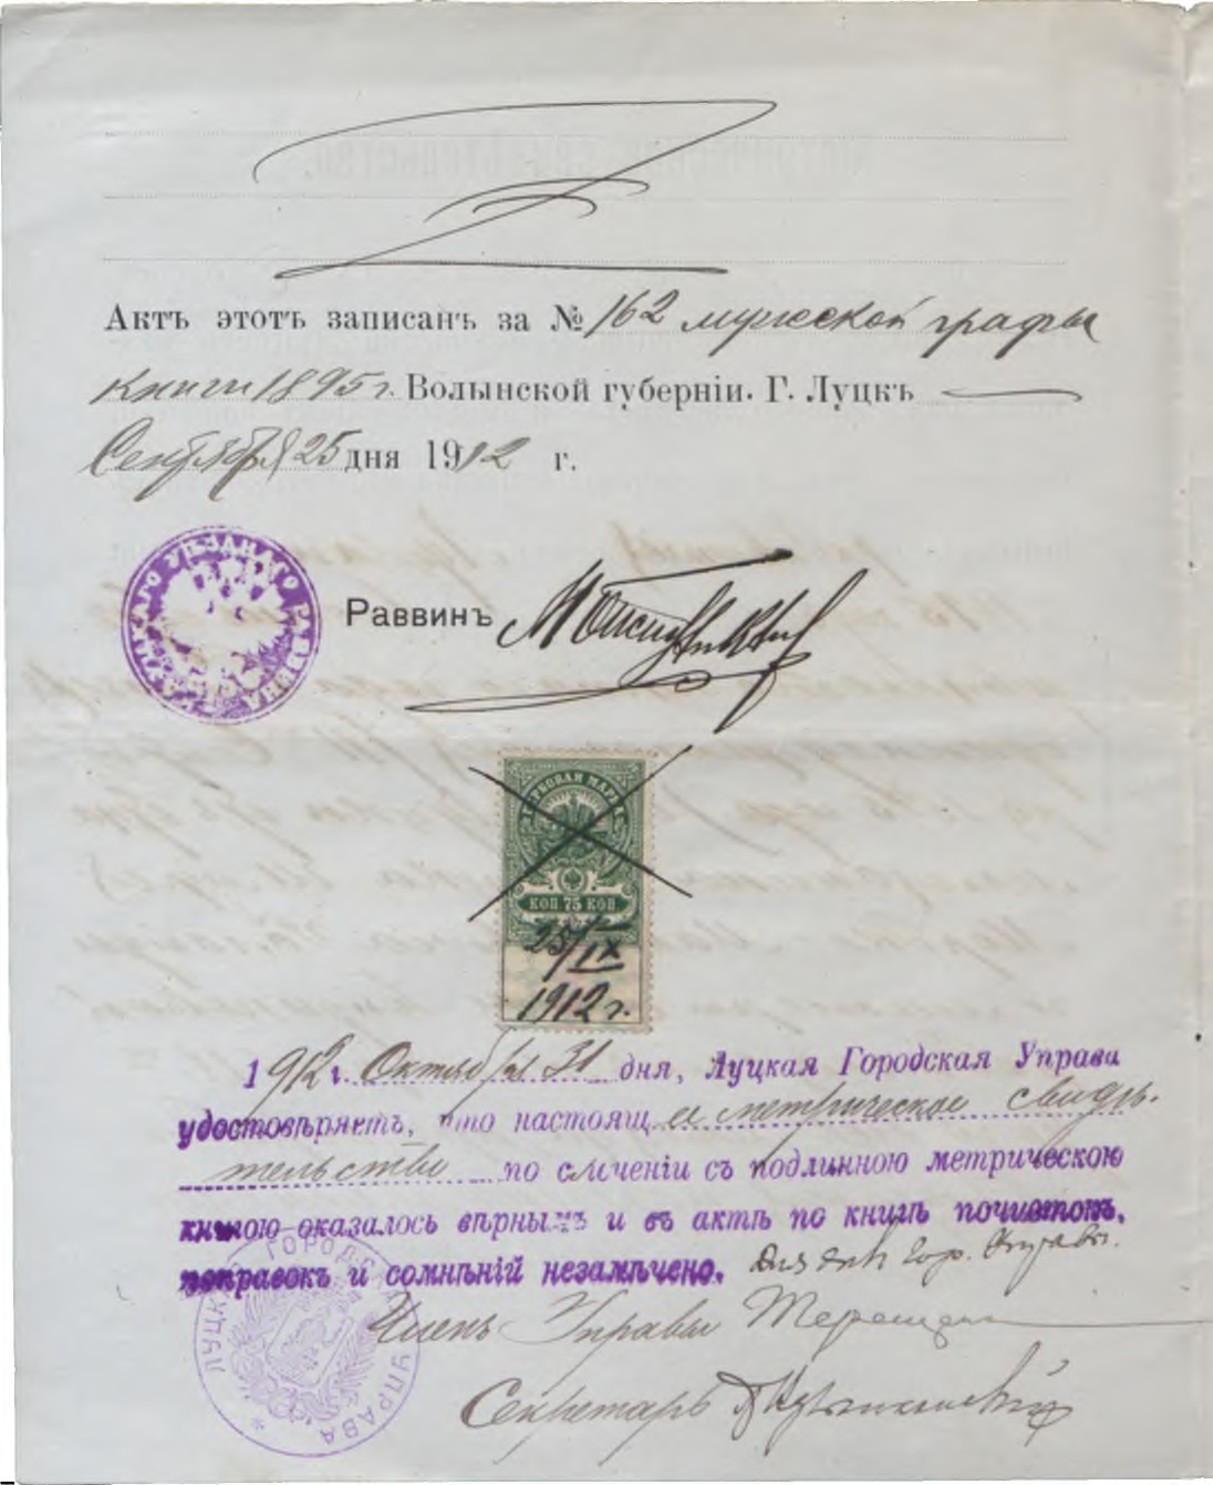 Актъ этотъ записанъ за № 162 мужской графы
книги 1895 г. Волынской губерніи. Г. Луцкъ
Сентября 25 дня 1912 г.
ЛУЦКАГО УѢЗДНАГО РАВВИНА
Раввинъ
ГЕРБОВАЯ МАРКА
КОП 75 КОП
25/IX
1912 г.
1912 г. Октября 31 дня, Луцкая Городская Управа
удостовѣряетъ, что настоящ ее метрическое свидѣ-
тельство по сличеніи съ подлинною метрическою
книгою оказалось вѣрнымъ и въ актѣ по книгѣ почистокъ,
поправокъ и сомнѣній незамѣчено. Для Гор. Управы.
Членъ Управы
Секретарь
ЛУЦКАЯ ГОРОДСКАЯ УПРАВА